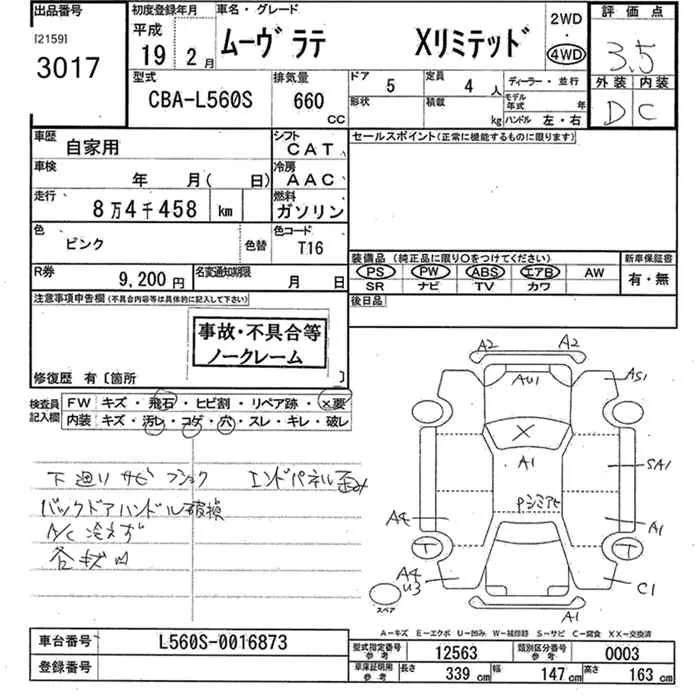 出品番号
[2159]
3017
初度登録年月
平成
19 2月
車名・グレード
ムーヴ ラテ Xリミテッド
2WD
・
4WD
評価点
3.5
外装 内装
D C
型式
CBA-L560S
排気量
660
CC
ドア
5
定員
4 人
形状
積載
kg
ディーラー・並行
モデル年式 年
ハンドル 左・右
車歴
自家用
シフト
CAT
車検
年 月( 日)
冷房
AAC
走行
8万4千458 km
燃料
ガソリン
色
ピンク
色替
色コード
T16
R券
9,200円
名変通知期限
月 日
セールスポイント(正常に機能するものに限ります)
装備品 (純正品に限り〇をつけてください)
新車保証書
PS PW ABS エアB AW
SR ナビ TV カワ
有・無
後日品
注意事項申告欄(不具合内容等は具体的に記入して下さい)
事故・不具合等
ノークレーム
修復歴 有〔箇所 〕
検査員記入欄
FW キズ・飛石・ヒビ割・リペア跡・×要
内装 キズ・汚レ・コゲ・穴・スレ・キレ・破レ
下廻りサビ エンドパネル歪み
バックドアハンドル破損
A/C 冷えず
各キズ凹
A2 A2
AU1
AS1
X
A1
SA1
A4
A1
A4
U3
C1
A1
T T
スペア
A-キズ E-エクボ U-凹み W-補修跡 S-サビ C-腐食 XX-交換済
車台番号
L560S-0016873
登録番号
型式指定番号
参考
12563
類別区分番号
参考
0003
車庫証明用
参考
長さ 339 cm 幅 147 cm 高さ 163 cm